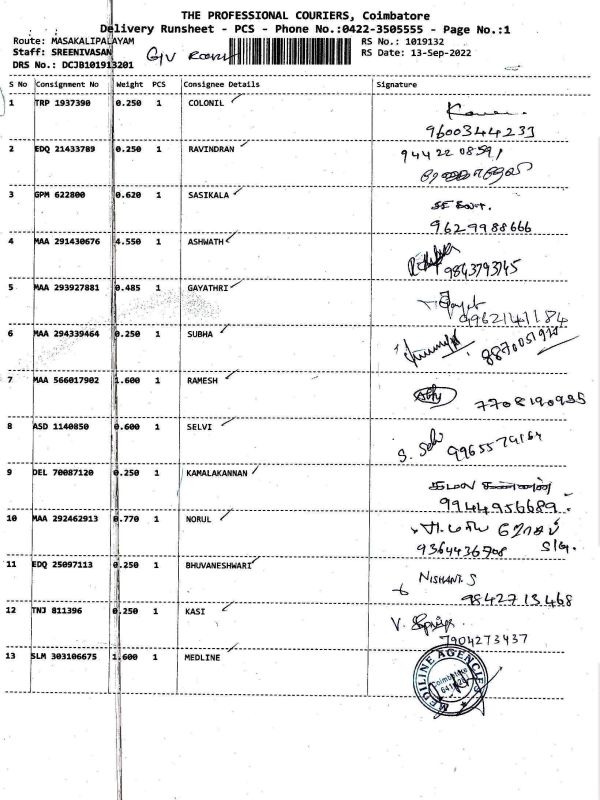 THE PROFESSIONAL COURIERS, Coimbatore
Delivery Runsheet - PCS - Phone No.:0422-3505555 - Page No.:1
Route: MASAKALIPALAYAM RS No.: 1019132
Staff: SREENIVASAN G/V RS Date: 13-Sep-2022
DRS No.: DCJB101913201
S No Consignment No Weight PCS Consignee Details Signature
1 TRP 1937390 0.250 1 COLONIL
9600344233
2 EDQ 21433789 0.250 1 RAVINDRAN 94422 08591
3 GPM 622800 0.620 1 SASIKALA
9629988666
4 MAA 291430676 4.550 1 ASHWATH
9843793745
5 MAA 293927881 0.485 1 GAYATHRI
9962141184
6 MAA 294339464 0.250 1 SUBHA
7 MAA 566017902 1.600 1 RAMESH
7708190955
8 ASD 1140850 0.600 1 SELVI
S. Selvi
9 DEL 70087120 0.250 1 KAMALAKANNAN
9944956689
10 MAA 292462913 0.770 1 NORUL
9364436708
11 EDQ 25097113 0.250 1 BHUVANESHWARI NISHANT. S
9842713468
12 TNJ 811396 0.250 1 KASI
7904273437
13 SLM 303106675 1.600 1 MEDLINE
MEDILINE AGENCIES
Coimbatore